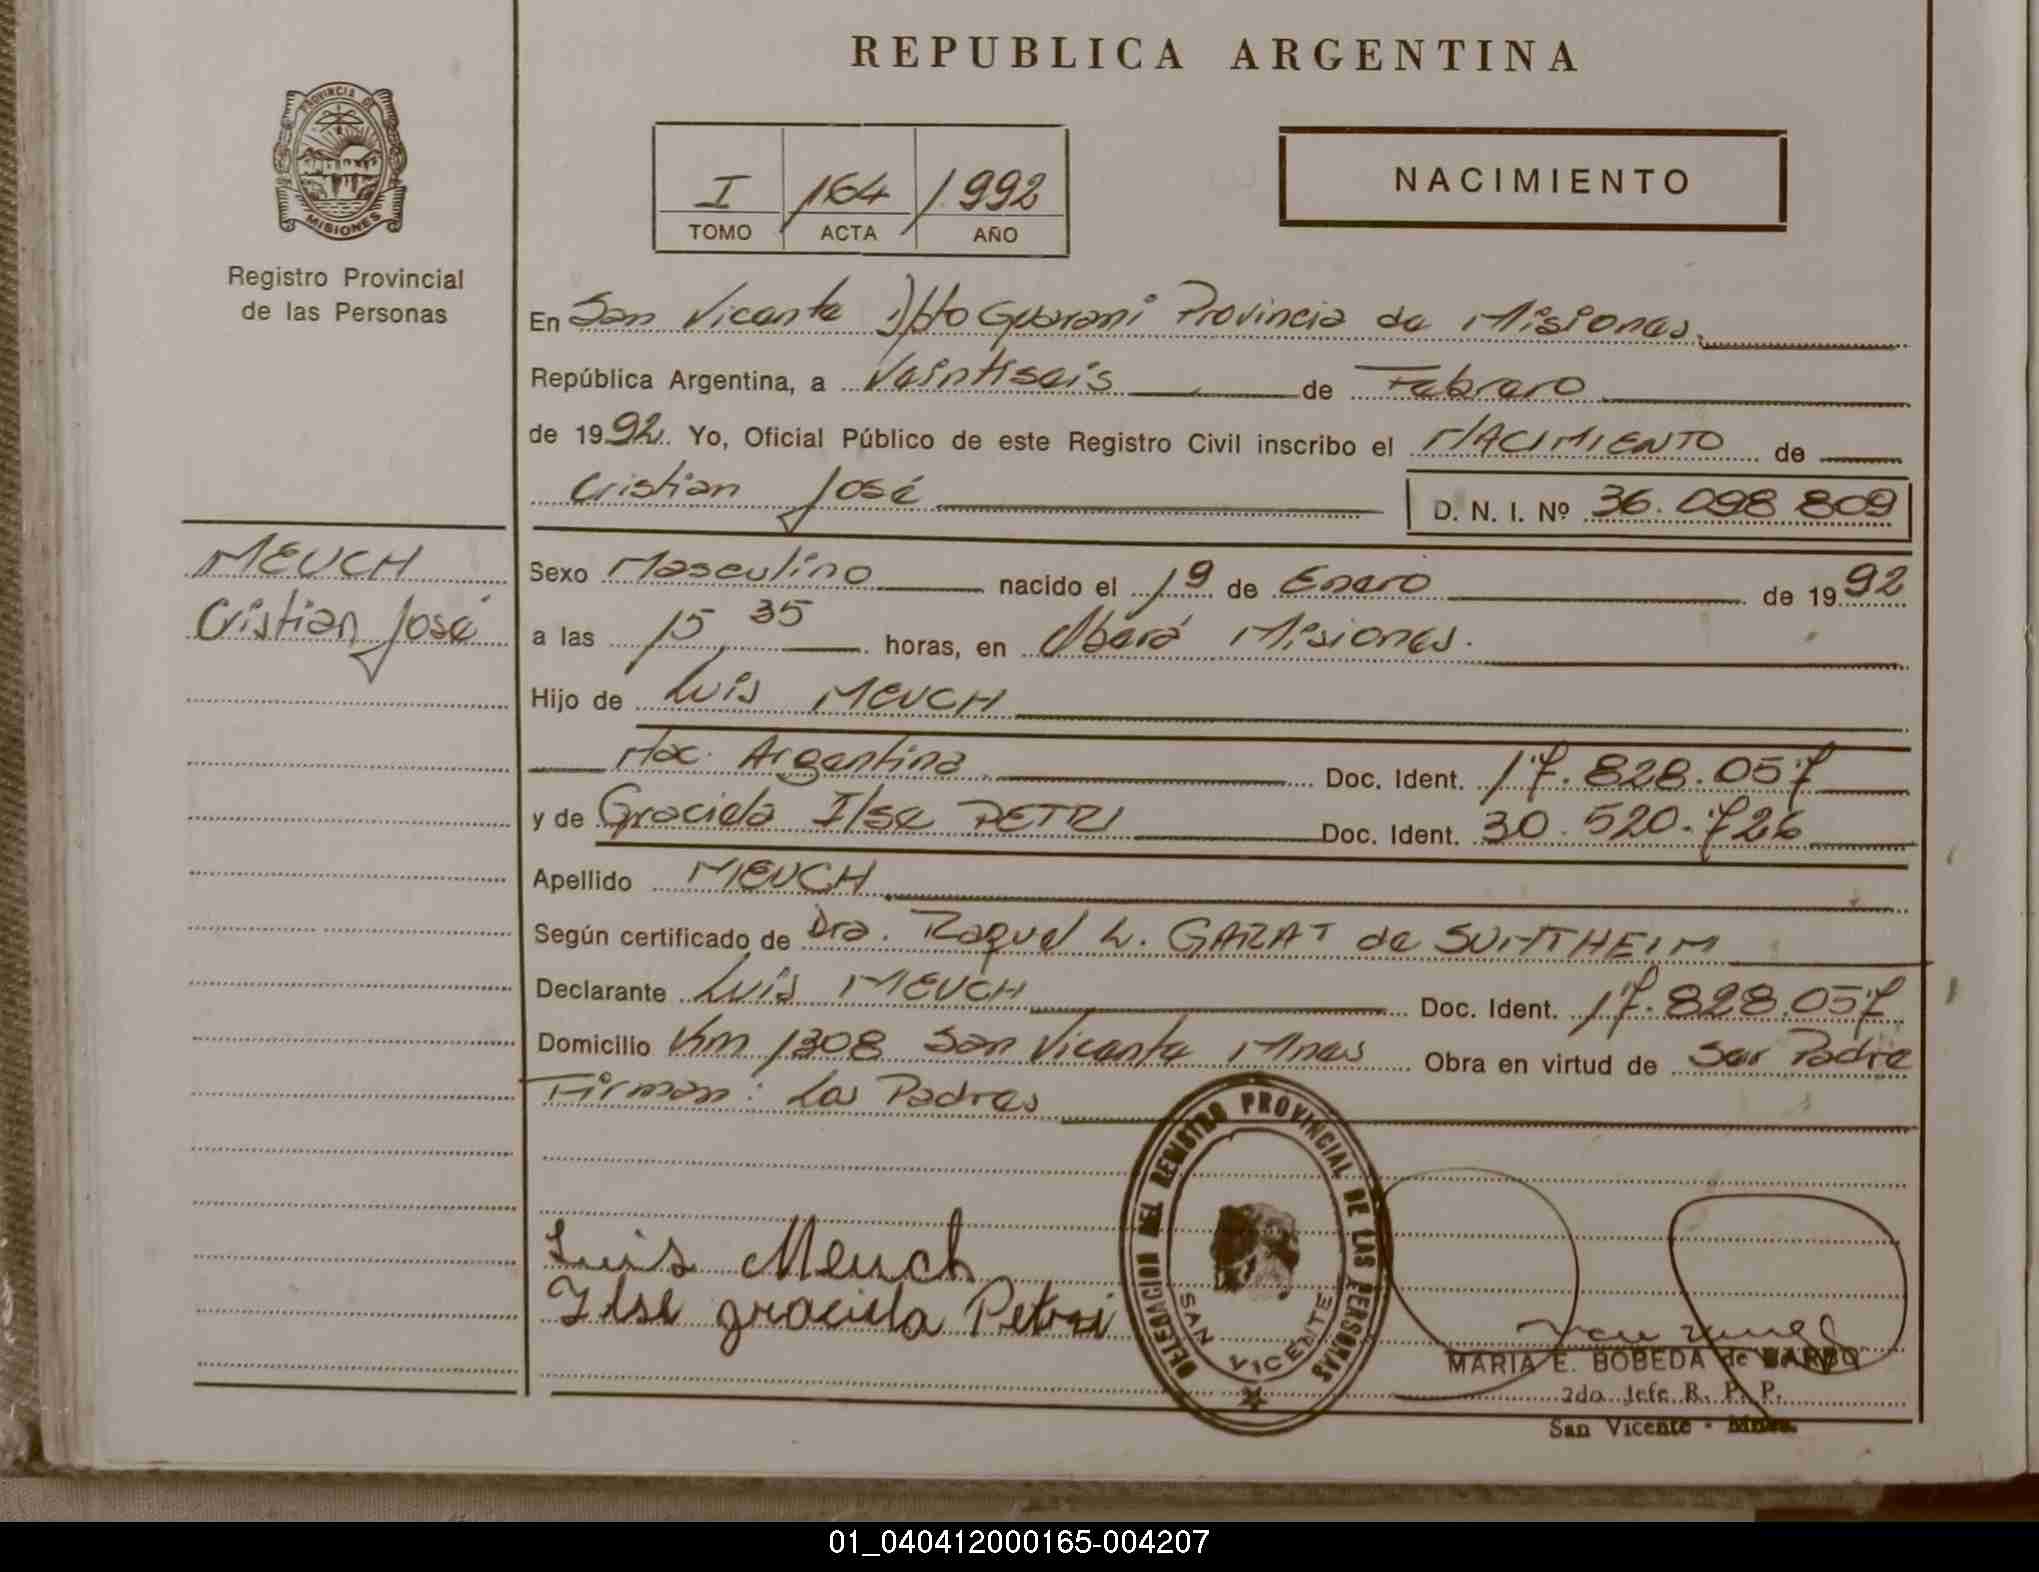 REPUBLICA ARGENTINA
PROVINCIA DE
MISIONES
Registro Provincial
de las Personas
I 164 1992
TOMO ACTA AÑO
NACIMIENTO
En San Vicente Dpto Guarani Provincia de Misiones.
República Argentina, a Veintiseis de Febrero
de 1992. Yo, Oficial Público de este Registro Civil inscribo el NACIMIENTO de
Cristian José D. N. I. Nº 36.098 809
MEUCH
Cristian José
Sexo Masculino nacido el 19 de Enero de 1992
a las 15 35 horas, en Oberá Misiones.
Hijo de Luis MEUCH
Nac. Argentina Doc. Ident. 17.828.057
y de Graciela Ilse PETRI Doc. Ident. 30.520.726
Apellido MEUCH
Según certificado de Dra. Raquel L. GARAT de
Declarante Luis MEUCH Doc. Ident. 17.828.057
Domicilio Km 1308 San Vicente Mnes Obra en virtud de Ser Padre
Firman: Los Padres
Luis Meuch
Ilse graciela Petri
DELEGACION DEL REGISTRO PROVINCIAL DE LAS PERSONAS
SAN VICENTE
MARIA E. BOBEDA de
2do. Jefe R. P. P.
San Vicente - Mnes.
01_040412000165-004207